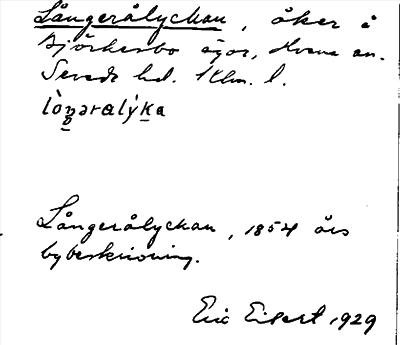 Långerålyckan, åker å
Björkesbo ägor, Hvena sn.
Sevede hd. Klm. l.
lòŋəralýka
Långerålyckan, 1854 års
bybeskrivning.
Eric Eilert 1929